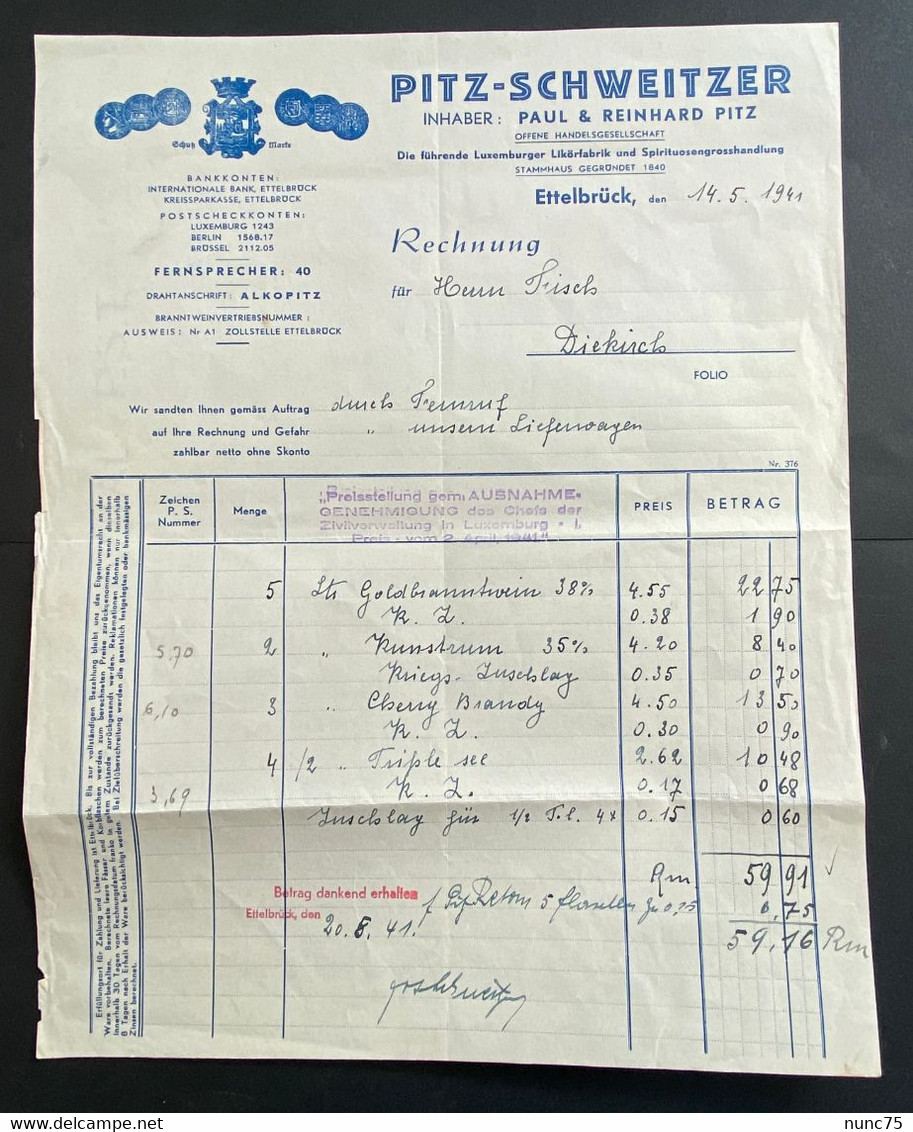 PITZ-SCHWEITZER
INHABER: PAUL & REINHARD PITZ
OFFENE HANDELSGESELLSCHAFT
Die führende Luxemburger Likörfabrik und Spirituosengrosshandlung
STAMMHAUS GEGRÜNDET 1840
Schutz Marke
BANKKONTEN:
INTERNATIONALE BANK, ETTELBRÜCK
KREISSPARKASSE, ETTELBRÜCK
POSTSCHECKKONTEN:
LUXEMBURG 1243
BERLIN 1568.17
BRÜSSEL 2112.05
FERNSPRECHER: 40
DRAHTANSCHRIFT: ALKOPITZ
BRANNTWEINVERTRIEBSNUMMER:
AUSWEIS: Nr A1 ZOLLSTELLE ETTELBRÜCK
Ettelbrück, den 14.5.1941
Rechnung
für Herrn Frisch
Diekirch
FOLIO
Wir sandten Ihnen gemäss Auftrag durch Fernruf
auf Ihre Rechnung und Gefahr " unsern Lieferwagen
zahlbar netto ohne Skonto
Nr. 376
Zeichen P. S. Nummer Menge PREIS BETRAG
„Preisstellung gem. AUSNAHME-
GENEHMIGUNG des Chefs der
Zivilverwaltung in Luxemburg - I.
Preis - vom 2. April, 1941"
5 Lts Goldbranntwein 38% 4.55 22 75
K. Z. 0.38 1 90
5,70 2 " Kunstrum 35% 4.20 8 40
Kriegs-Zuschlag 0.35 0 70
6,10 3 " Cherry Brandy 4.50 13 50
K. Z. 0.30 0 90
4 1/2 " Triple sec 2.62 10 48
K. Z. 0.17 0 68
3,69
Zuschlag für 1/2 Fl. 4x 0.15 0 60
Rm 59 91
Betrag dankend erhalten
Ettelbrück, den 20.5.41.
5 zu 0.15 0,75
59,16 Rm
Erfüllungsort für Zahlung und Lieferung ist Ettelbrück. Bis zur vollständigen Bezahlung bleibt uns das Eigentumsrecht an der
Ware vorbehalten. Berechnete leere Fässer und Korbflaschen werden zum berechneten Preise zurückgenommen, wenn dieselben
innerhalb 30 Tagen vom Rechnungsdatum franko in gutem Zustande zurückgesandt werden. Reklamationen können nur innerhalb
8 Tagen nach Erhalt der Ware berücksichtigt werden. Bei Zielüberschreitung werden die gesetzlich festgelegten oder bankmässigen
Zinsen berechnet.
nunc75